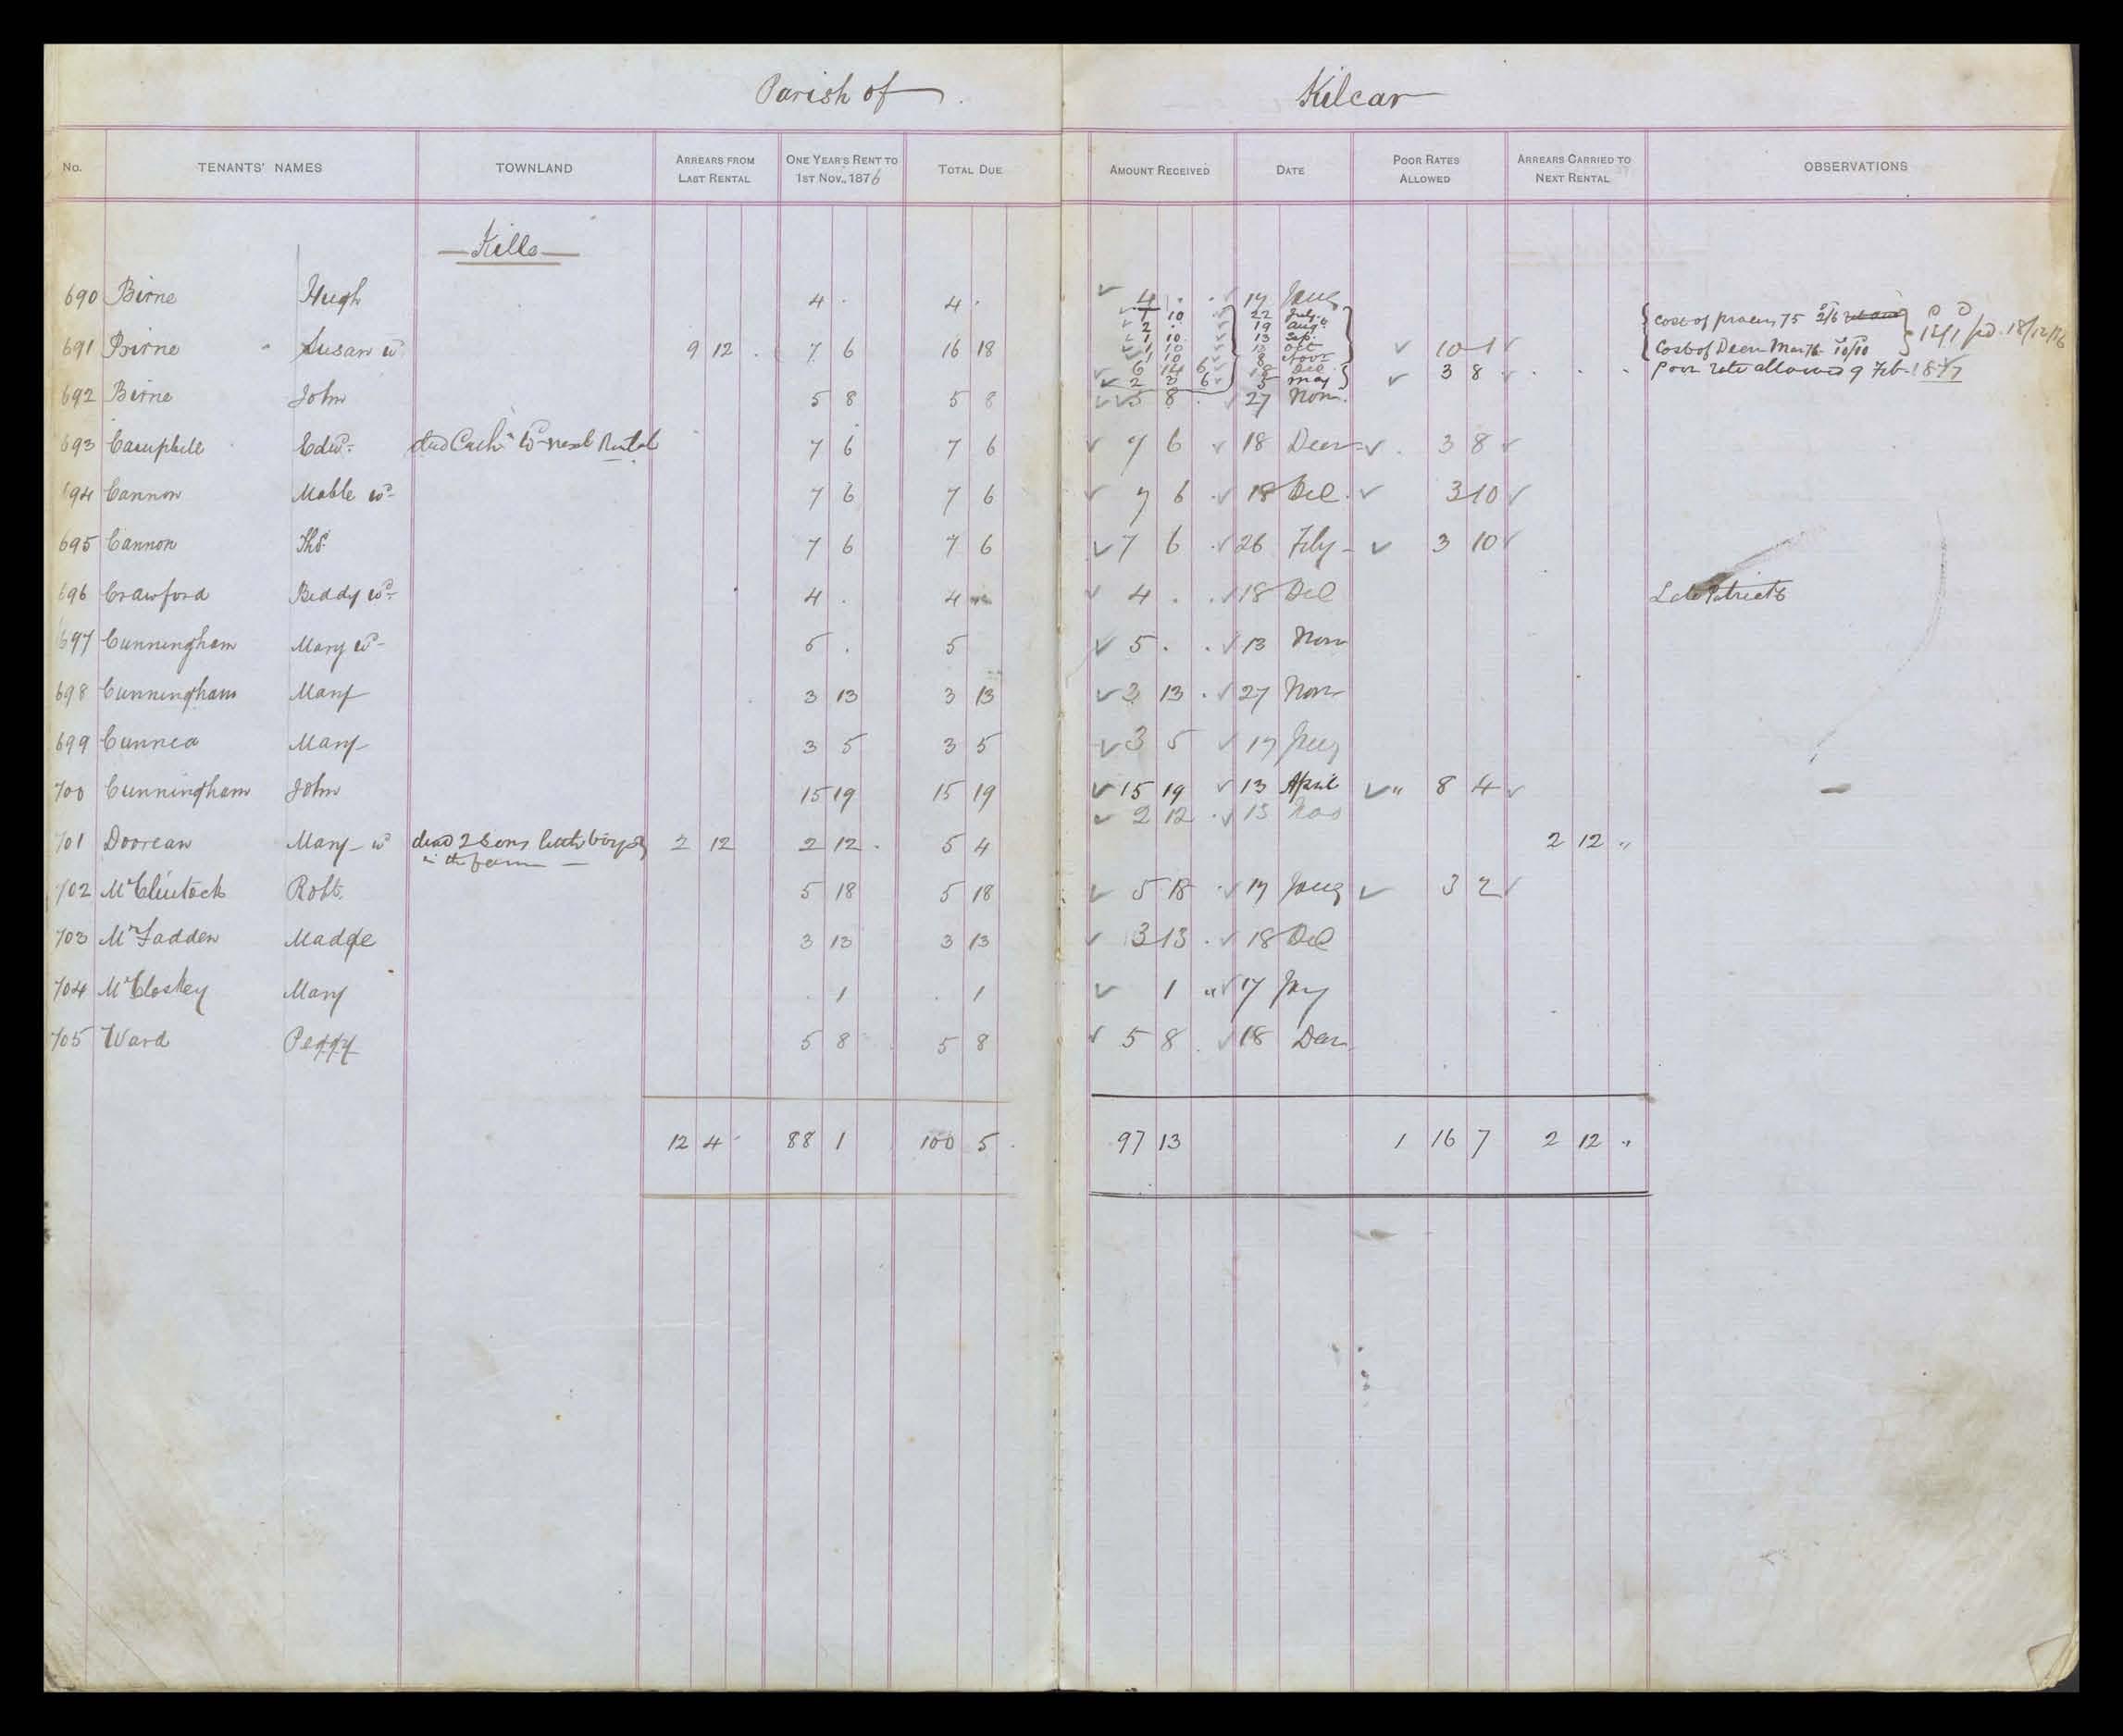 Parish of Kilcar
No. TENANTS' NAMES TOWNLAND ARREARS FROM LAST RENTAL ONE YEAR'S RENT TO 1ST NOV., 1876 TOTAL DUE AMOUNT RECEIVED DATE POOR RATES ALLOWED ARREARS CARRIED TO NEXT RENTAL OBSERVATIONS
Kills
690 Birne Hugh 4 . 4 . 4 . . 17 Jany
1 10 22 July
2 . 19 Augt
1 10 13 Sep.
691 Birne Susan wd 9 12 . 7 6 16 18 1 10 Oct 10 1 Cost of 75 2/6
1 10 8 Novr Cost of Decree Mar 76 10/10 18/12/76
6 14 6 18 Dec
2 3 6 5 May 3 8 . . . Poor rate allowed 9 Feb 1877
692 Birne John 5 8 5 8 5 8 . 27 Novr.
693 Campbell Edwd. dead Cathn. wd next Rental 7 6 7 6 7 6 18 Decr 3 8
694 Cannon Mable wd 7 6 7 6 7 6 . 18 Dec. 3 10
695 Cannon Thos. 7 6 7 6 7 6 . 26 Feby 3 10
696 Crawford Biddy wd 4 . 4 4 . . 18 Dec Late Patricks
697 Cunningham Mary wd 5 . 5 5 . . 13 Novr
698 Cunningham Mary 3 13 3 13 3 13 . 27 Novr
699 Cunnea Mary 3 5 3 5 3 5 17 Jany
700 Cunningham John 15 19 15 19 15 19 13 April " 8 4
2 12 . 13 Nov
701 Doorean Mary wd dead 2 Sons little boys 2 12 2 12 . 5 4 2 12 "
in the farm
702 McClintock Robt. 5 18 5 18 5 18 . 17 Jany 3 2
703 McFadden Madge 3 13 3 13 3 13 . 18 Dec
704 McCloskey Mary . 1 . 1 1 " 17 Jany
705 Ward Peggy 5 8 5 8 5 8 . 18 Decr.
12 4 88 1 100 5 . 97 13 1 16 7 2 12 "